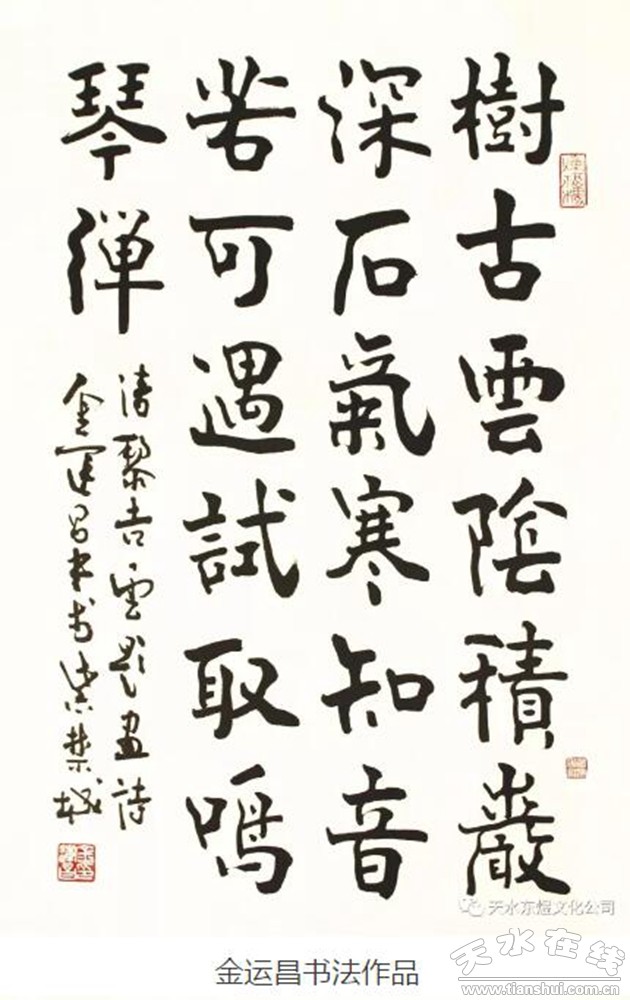 樹古雲陰積巖
深石氣寒知音
若可遇試取鳴
琴彈
清黎吉雲題畫詩
金運昌书於紫禁城
天水东煜文化公司
天水在线
www.tianshui.com.cn
金运昌书法作品